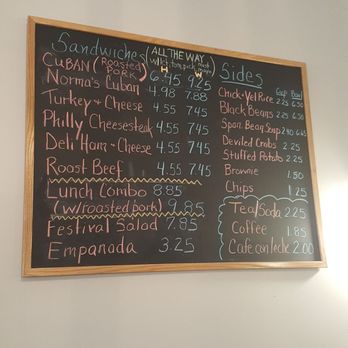 Sandwiches (ALL THE WAY
H W
CUBAN (Roasted PORK) 6.45 9.25
Norma's Cuban 4.98 7.88
Turkey + Cheese 4.55 7.45
Philly Cheesesteak 4.55 7.45
Deli Ham + Cheese 4.55 7.45
Roast Beef 4.55 7.45
Lunch Combo 8.85
(w/roasted pork) 9.85
Festival Salad 7.85
Empanada 3.25
Sides
Cup Bowl
Chick + Yel Rice 2.25 6.50
Black Beans 2.25 6.50
Span. Bean Soup 2.90 6.65
Deviled Crabs 2.25
Stuffed Potato 2.25
Brownie 1.50
Chips 1.25
Tea/Soda 2.25
Coffee 1.85
Café con leche 2.00